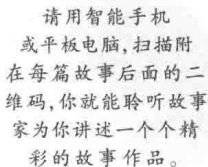 请用智能手机
或平板电脑,扫描附
在每篇故事后面的二
维码,你就能聆听故事
家为你讲述一个个精
彩的故事作品。